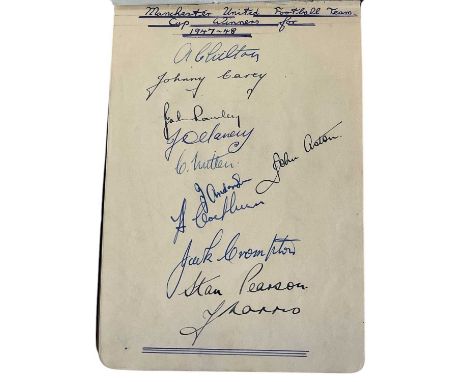 Manchester United Football Team
Cup Winners for
1947-48
A C Chilton
Johnny Carey
Jack Rowley
J Delaney
C. Mitten
John Aston
J Anderson
H Cockburn
Jack Crompton
Stan Pearson
J Morris